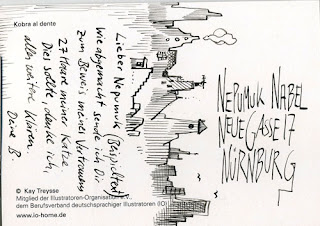 Kobra al dente
Lieber Nepumuk (Bespalten)
wie abgemacht sende ich Dir
zum Beweis meines Vertrauens
27 Haare meiner Katze.
Dies sollte, denke ich,
alles weitere klären.
Deine B.
NEPUMUK NABEL
NEUE GASSE 17
NÜRNBURG
© Kay Treysse
Mitglied der Illustratoren-Organisation e.V.,
dem Berufsverband deutschsprachiger Illustratoren (IO)
www.io-home.de